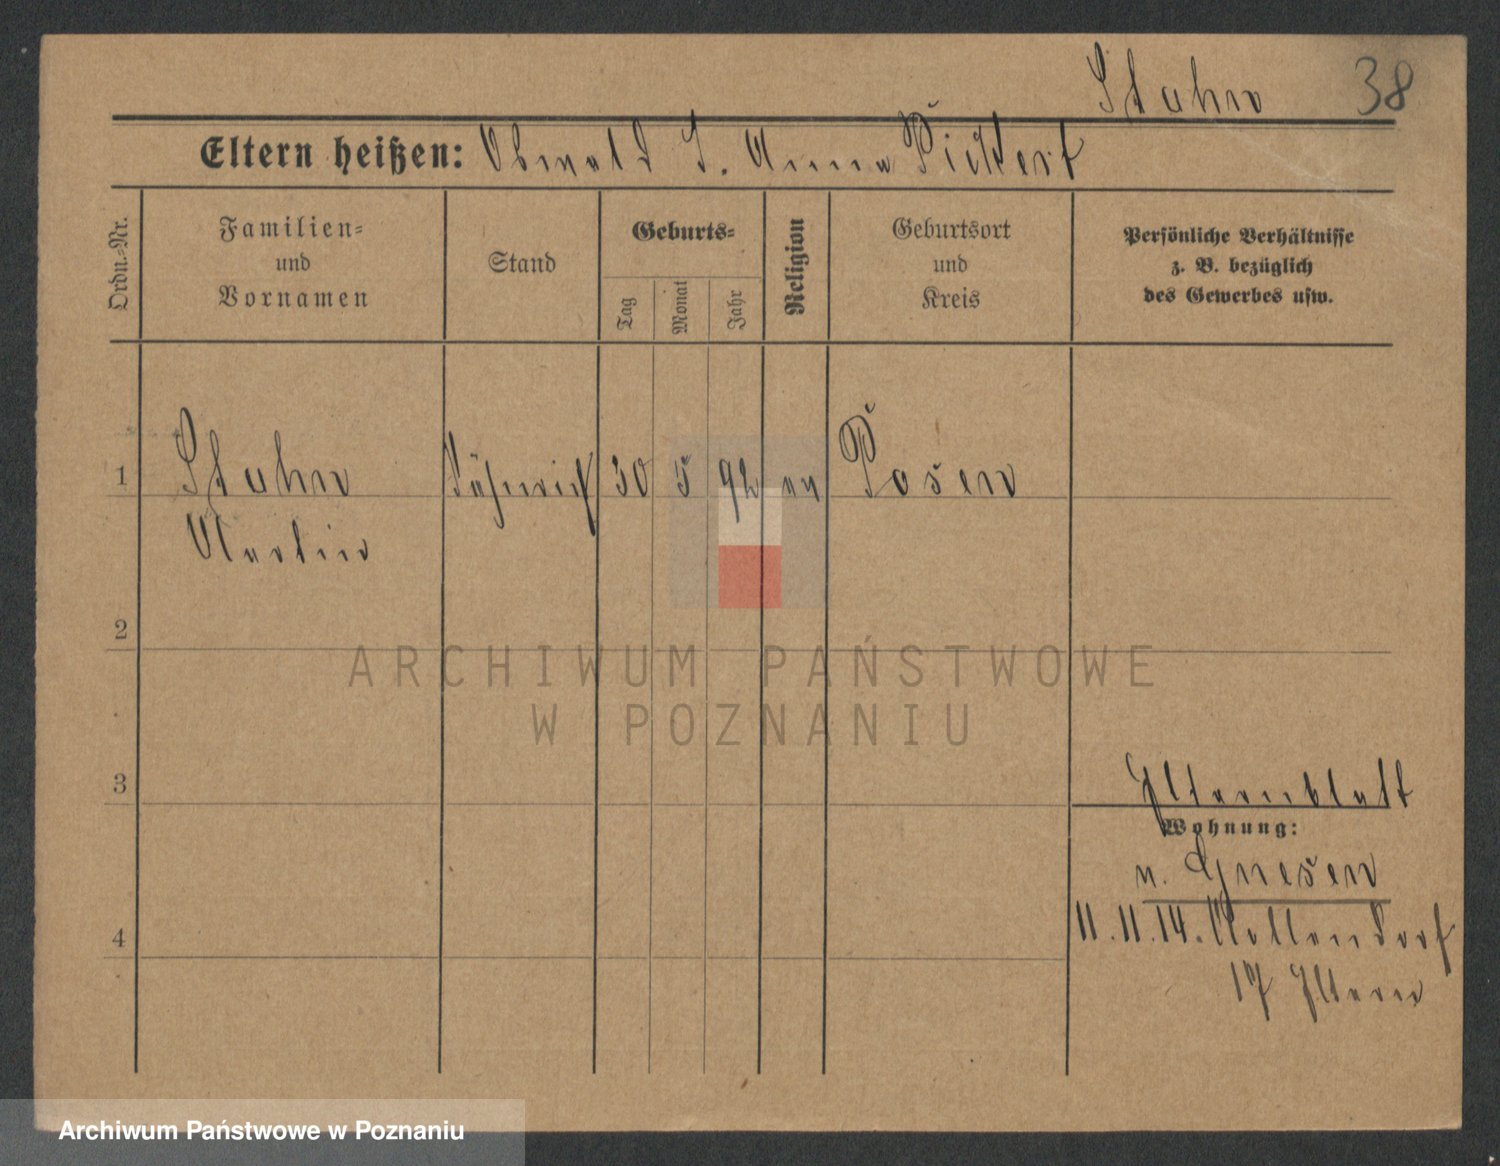 Stahn 38
Eltern heißen: Oswald S. Anna Pickert
Ordn.-Nr.
Familien-
und
Vornamen
Stand
Geburts-
Tag
Monat
Jahr
Religion
Geburtsort
und
Kreis
Persönliche Verhältnisse
z. B. bezüglich
des Gewerbes usw.
1 Stahn Fähnrich 30 5 92 ev Posen
Martin
2
3
Elternblatt
Wohnung:
n. Gnesen
4
11.11.14. Nollendorf
17 Eltern
ARCHIWUM PAŃSTWOWE
W POZNANIU
Archiwum Państwowe w Poznaniu